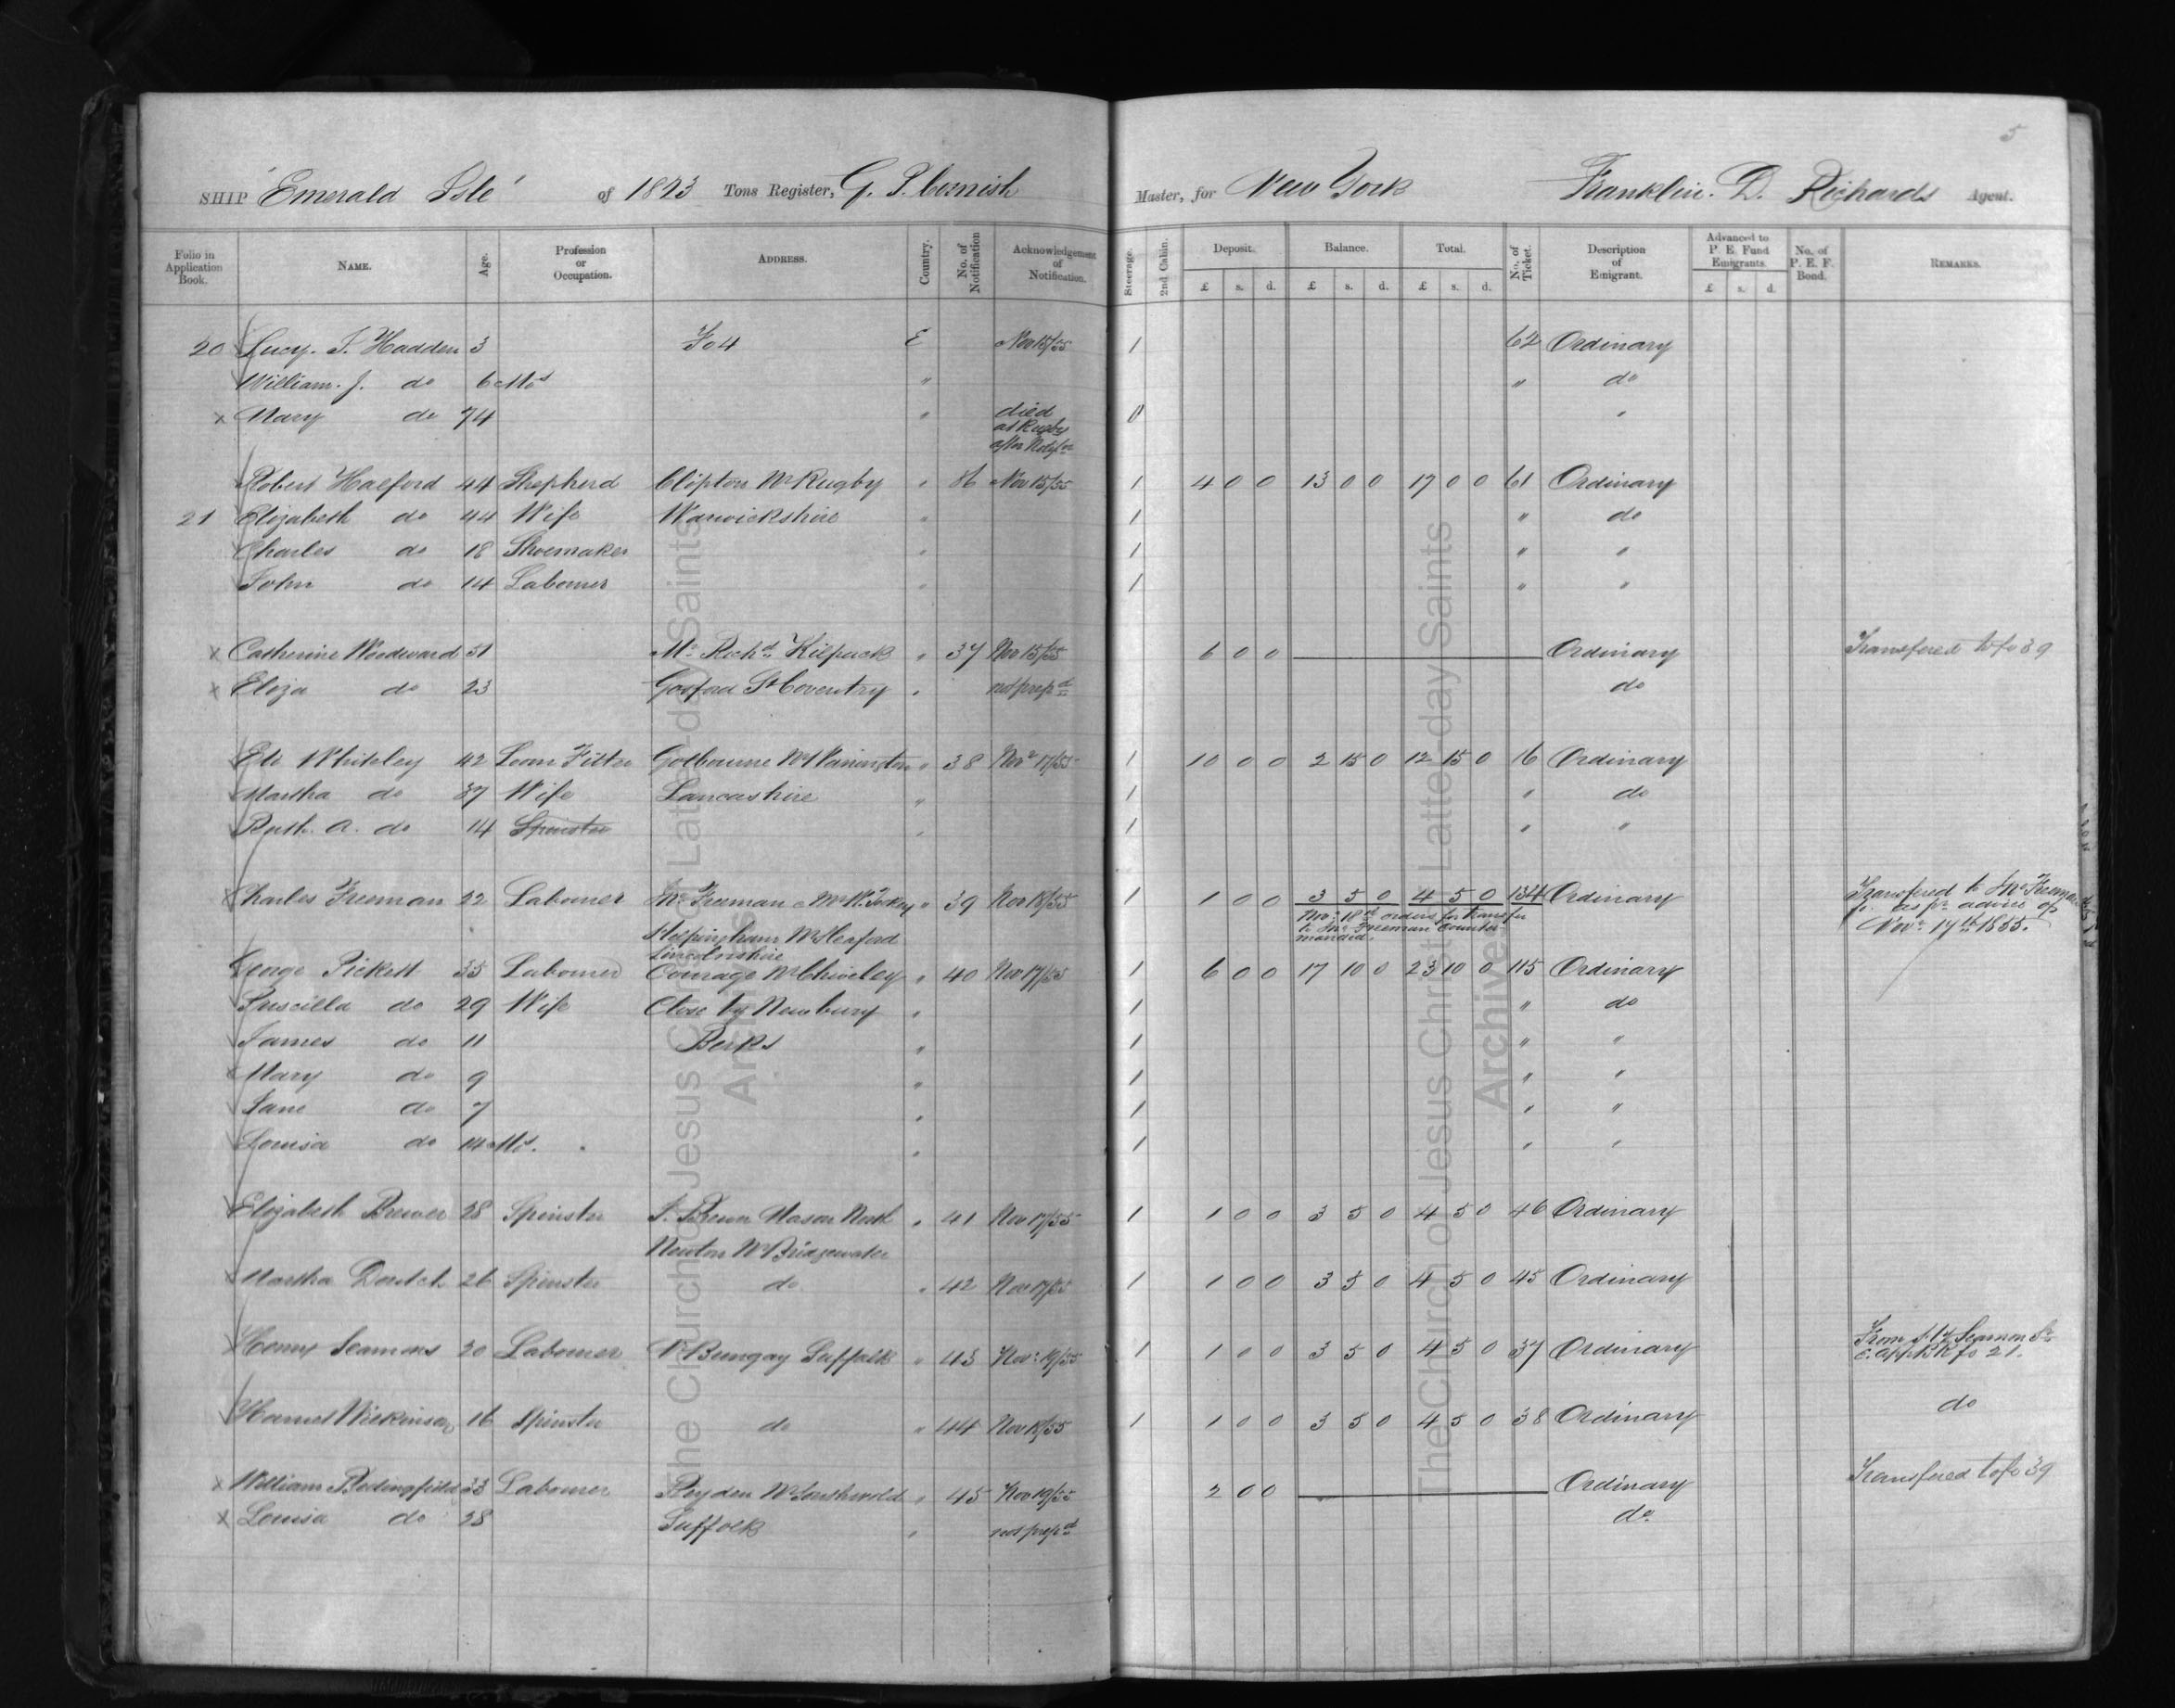 5
SHIP 'Emerald Isle' of 1823 Tons Register, G. P. Cornish Master, for New York Franklin. D. Richards Agent.
Folio in Application Book. NAME. Age. Profession or Occupation. ADDRESS. Country. No. of Notification Acknowledgement of Notification. Steerage. 2nd Cabin. Deposit. Balance. Total. No. of Ticket. Description of Emigrant. Advanced to P. E. Fund Emigrants. No. of P. E. F. Bond. REMARKS.
£ s. d. £ s. d. £ s. d. £ s. d.
20 Lucy. T. Hadden 3 Fo 4 E Nov 15/55 1 62 Ordinary
William. J. do 6 Mos " " do
x Mary do 74 " died 0 "
at Rugby
after Notif
Robert Halford 44 Shepherd Clipton Nr Rugby " 36 Nov 15/55 1 4 0 0 13 0 0 17 0 0 61 Ordinary
21 Elizabeth do 44 Wife Warwickshire " 1 " do
Charles do 18 Shoemaker " 1 " "
John do 14 Labourer " 1 " "
x Catherine Woodward 51 Mr. Richd. Kilpack " 37 Nov 15/55 6 0 0 Ordinary Transfered to fo 39
x Eliza do 23 Gosford St Coventry " not prepd do
Eli Whiteley 42 Loom Fitter Golbourne Nr Warrington " 38 Nov 17/55 1 10 0 0 2 15 0 12 15 0 16 Ordinary
Martha do 37 Wife Lancashire " 1 " do
Ruth. A. do 14 Spinster " 1 " "
Charles Freeman 22 Labourer Jno. Freeman " 39 Nov 18/55 1 1 0 0 3 5 0 4 5 0 134 Ordinary Transfered to Jno. Freeman
Nov. 18th orders for transfer as pr advice of
to Jno. Freeman counter- Nov. 17th 1855.
Helpringham Nr Sleaford manded.
Lincolnshire
George Pickett 35 Labourer Courage Nr Chiveley " 40 Nov 17/55 1 6 0 0 17 10 0 23 10 0 115 Ordinary
Priscilla do 29 Wife Close by Newbury " 1 " do
James do 11 Berks " 1 " "
Mary do 9 " 1 " "
Jane do 7 " 1 " "
Louisa do 14 Mos. " 1 " "
Elizabeth Brewer 28 Spinster J. Brewer Mason North " 41 Nov 17/55 1 1 0 0 3 5 0 4 5 0 46 Ordinary
Newton Nr Bridgewater
Martha Doutch 26 Spinster do " 42 Nov 17/55 1 1 0 0 3 5 0 4 5 0 45 Ordinary
Henry Seamons 20 Labourer Nr Bungay Suffolk " 43 Nov. 19/55 1 1 0 0 3 5 0 4 5 0 37 Ordinary From
App Bk fo 21.
Harriet Wilkinson 16 Spinster do " 44 Nov 18/55 1 1 0 0 3 5 0 4 5 0 38 Ordinary do
x William Bedingfield 33 Labourer Reydon Nr Southwold " 45 Nov 19/55 2 0 0 Ordinary Transfered to fo 39
x Louisa do 28 Suffolk " not prepd do
The Church of Jesus Christ of Latter-day Saints
Archives
The Church of Jesus Christ of Latter-day Saints
Archives